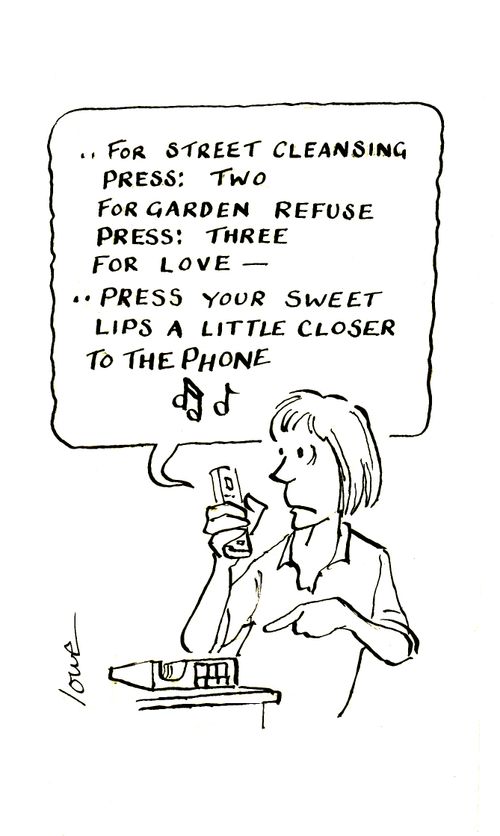 .. FOR STREET CLEANSING
PRESS: TWO
FOR GARDEN REFUSE
PRESS: THREE
FOR LOVE —
.. PRESS YOUR SWEET
LIPS A LITTLE CLOSER
TO THE PHONE
lowe